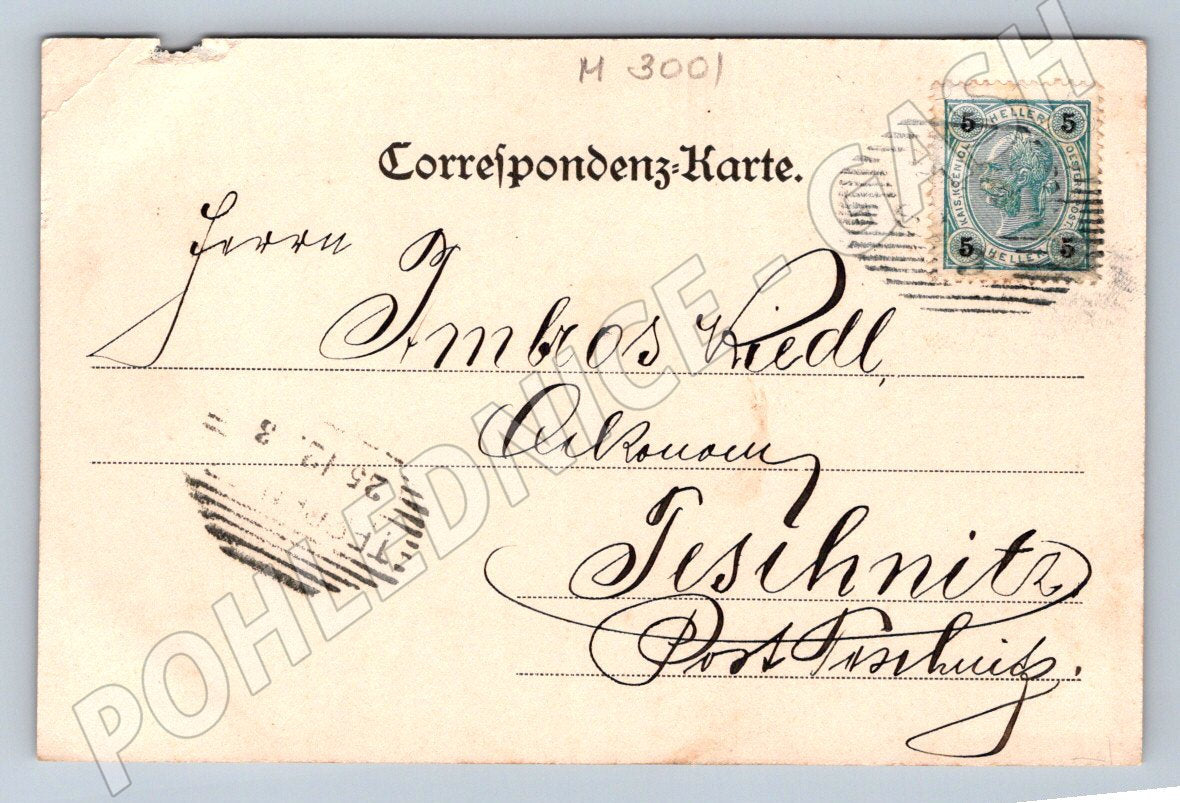 M 3001
Correspondenz-Karte.
5 HELLER 5
KAIS. KOENIGL. OESTERR. POST
5 HELLER 5
Herrn
Ambros Riedl,
Oekonom
Teschnitz
Post Teschnitz.
25 12 3
POHLEDNICE - CASH